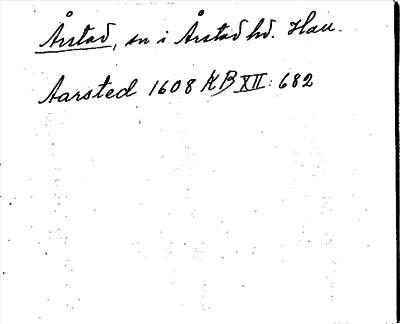 Årstad, sn i Årstad hd. Hall.
Aarsted 1608 KB XII: 682